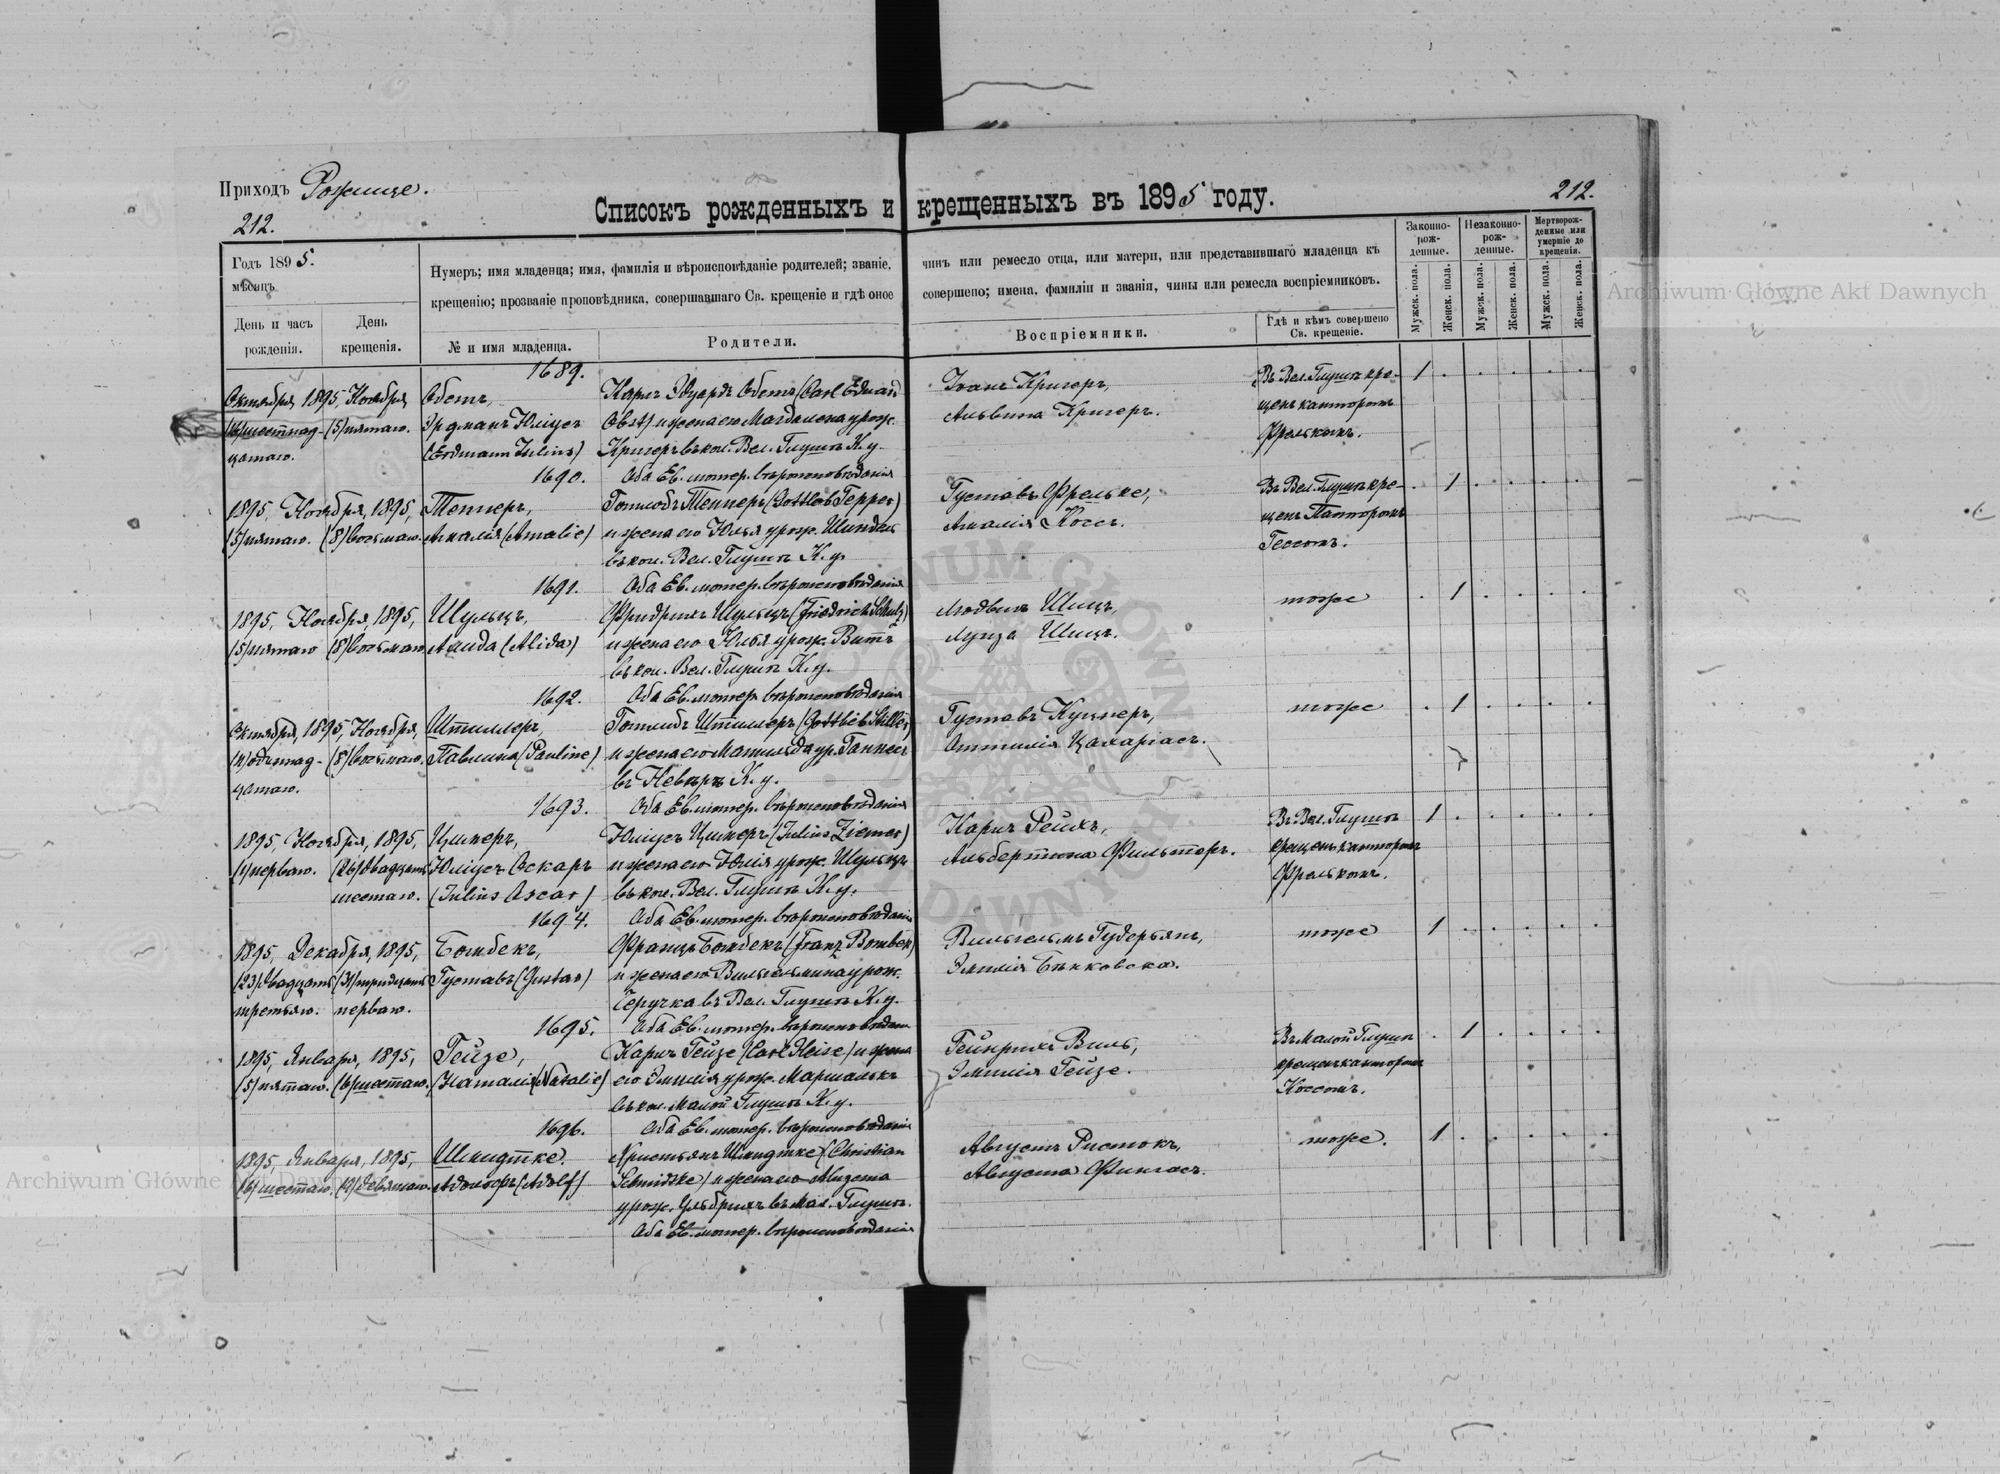 Приходъ Рожище.
212.
Списокъ рожденныхъ и крещенныхъ въ 1895 году.
212.
Годъ 1895.
мѣсяцъ
День и часъ рожденія.
День крещенія.
Нумеръ; имя младенца; имя, фамилія и вѣроисповѣданіе родителей; званіе, чинъ или ремесло отца, или матери, или представившаго младенца къ
крещенію; прозваніе проповѣдника, совершавшаго Св. крещеніе и гдѣ оное совершено; имена, фамиліи и званія, чины или ремесла воспріемниковъ.
№ и имя младенца.
Родители.
Воспріемники.
Гдѣ и кѣмъ совершено Св. крещеніе.
Законно-рож-денные.
Незаконно-рож-денные.
Мертворож-денные или умершіе до крещенія.
Мужск. пола.
Женск. пола.
Мужск. пола.
Женск. пола.
Мужск. пола.
Женск. пола.
1689.
Октября 1895, Ноября
(16) шестнад-
цатаго.
(5) пятаго.
Обетъ,
Эрдманъ Юліусъ
(Erdmann Julius)
Карлъ Эдуардъ Обетъ (Carl Eduard
Obst) и жена его Магдалена урож.
Кригеръ въ кол. Вел. Глуша К. у.
Оба Ев. лютер. вѣроисповѣданія
Іоанъ Кригеръ,
Альвина Кригеръ.
Въ Вел. Глушѣ кре-
щенъ канторомъ
Фрелькомъ.
1
1690.
1895, Ноября, 1895,
(5) пятаго. (8) восьмаго.
Тепперъ,
Амалія (Amalie)
Готлобъ Тепперъ (Gottlob Tepper)
и жена его Юлья урож. Шиндель
въ кол. Вел. Глуша К. у.
Оба Ев. лютер. вѣроисповѣданія
Густавъ Фрельке,
Амалія Коссъ.
Въ Вел. Глушѣ кре-
щенъ Пасторомъ
Гессомъ.
1
1691.
1895, Ноября 1895,
(5) пятаго (8) восьмаго
Шульцъ,
Алида (Alida)
Фридрихъ Шульцъ (Friedrich Schulz)
и жена его Юлья урож. Витъ
въ кол. Вел. Глуша К. у.
Оба Ев. лютер. вѣроисповѣданія
Людвигъ Шицъ,
Луиза Шицъ.
тоже
1
1692.
Октября, 1895, Ноября,
(11) одиннад-
цатаго.
(8) восьмаго.
Штиллеръ,
Павлина (Pauline)
Готлибъ Штиллеръ (Gottlieb Stiller)
и жена его Матильда ур. Ганнесъ
въ Невѣрѣ К. у.
Оба Ев. лютер. вѣроисповѣданія
Густавъ Куцнеръ,
Оттилія Цахаріасъ.
тоже
1
1693.
1895, Ноября, 1895,
(1) перваго. (26) двадцать
шестаго.
Цимеръ,
Юліусъ Оскаръ
(Julius Oscar)
Юліусъ Цимеръ (Julius Ziemer)
и жена его Юлія урож. Шульцъ
въ кол. Вел. Глуша К. у.
Оба Ев. лютер. вѣроисповѣданія
Карлъ Рейхъ,
Альбертина Фильтеръ.
Въ Вел. Глушѣ
крещенъ канторомъ
Фрелькомъ.
1
1694.
1895, Декабря, 1895,
(23) двадцать (31) тридцать
третьяго. перваго.
Бомбекъ,
Густавъ (Gustav)
Францъ Бомбекъ (Franz Bombek)
и жена его Вильгельмина урож.
Геручка въ Вел. Глушѣ К. у.
Оба Ев. лютер. вѣроисповѣданія
Вильгельмъ Гудерьянъ,
Эмилія Бѣнковска.
тоже
1
1695.
1895, Января, 1895,
(5) пятаго. (6) шестаго.
Гейзе,
Наталія (Natalie)
Карлъ Гейзе (Carl Heise) и жена
его Эмилія урож. Маршалькъ
въ кол. Малой Глушѣ К. у.
Оба Ев. лютер. вѣроисповѣданія
Гейнрихъ Виль,
Эмилія Гейзе.
Въ Малой Глушѣ
крещенъ канторомъ
Коссомъ.
1
1696.
1895, Января, 1895,
(6) шестаго. (9) девятаго.
Шмидтке.
Адольфъ (Adolf)
Христьянъ Шмидтке (Christian
Schmidtke) и жена его Августа
урож. Ульбрихъ въ Мал. Глушѣ.
Оба Ев. лютер. вѣроисповѣданія
Августъ Ристокъ,
Августа Фингасъ.
тоже.
1
Archiwum Główne Akt Dawnych
Archiwum Główne Akt Dawnych